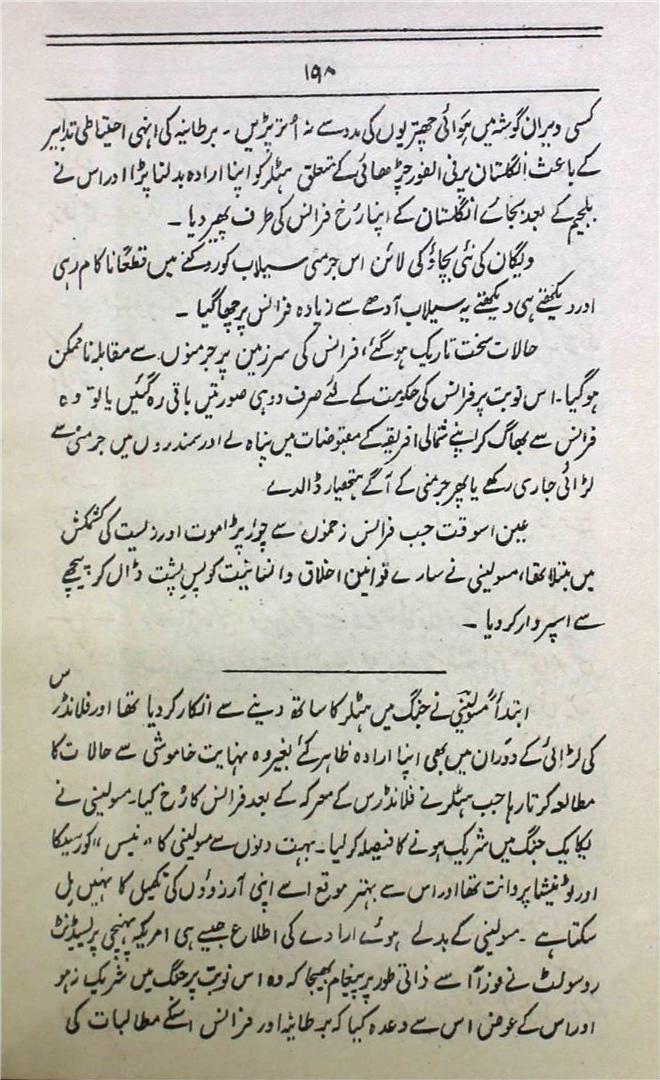 ۱۹۸
کسی ویران گوشہ میں ہوائی چھتریوں کی مدد سے نہ اُتر پڑیں ۔ برطانیہ کی انہی احتیاطی تدابیر
کے باعث انگلستان پر فی الفور چڑھائی کے متعلق ہٹلر کو اپنا ارادہ بدلنا پڑا اور اس نے
بلجیم کے بعد بجائے انگلستان کے اپنا رُخ فرانس کی طرف پھیر دیا ۔
ویگان کی نئی بچاؤ کی لائن اس جرمنی سیلاب کو روکنے میں قطعاً ناکام رہی
اور دیکھتے ہی دیکھتے یہ سیلاب آدھے سے زیادہ فرانس پر چھا گیا ۔
حالات سخت تاریک ہو گئے، فرانس کی سرزمین پر جرمنوں سے مقابلہ ناممکن
ہو گیا۔ اس نوبت پر فرانس کی حکومت کے لئے صرف دو ہی صورتیں باقی رہ گئیں یا تو وہ
فرانس سے بھاگ کر اپنے شمالی افریقہ کے مقبوضات میں پناہ لے اور سمندروں میں جرمنی سے
لڑائی جاری رکھے یا پھر جرمنی کے آگے ہتھیار ڈالدے
عین اسوقت جب فرانس زخموں سے چُور پڑا موت اور زیست کی کشمکش
میں مبتلا تھا، مسولینی نے سارے قوانین اخلاق و انسانیت کو پسِ پشت ڈال کر پیچھے
سے اسپر وار کر دیا ۔
ابتداً مسولینی نے جنگ میں ہٹلر کا ساتھ دینے سے انکار کر دیا تھا اور فلانڈرس
کی لڑائی کے دوران میں بھی اپنا ارادہ ظاہر کئے بغیر وہ نہایت خاموشی سے حالات کا
مطالعہ کرتا رہا جب ہٹلر نے فلانڈرس کے معرکہ کے بعد فرانس کا رُخ کیا۔ مسولینی نے
یکایک جنگ میں شریک ہونے کا فیصلہ کر لیا۔ بہت دنوں سے مسولینی کا "نیس" کورسیکا
اور ٹونیشیا پر دانت تھا اور اس سے بہتر موقع اسے اپنی آرزوؤں کی تکمیل کا نہیں مل
سکتا ہے ۔ مسولینی کے بدلے ہوئے ارادے کی اطلاع جیسے ہی امریکہ پہنچی پریسیڈنٹ
روسولٹ نے فوراً اسے ذاتی طور پر پیغام بھیجا کہ وہ اس نوبت پر جنگ میں شریک نہ ہو
اور اس کے عوض اس سے وعدہ کیا کہ برطانیہ اور فرانس اسکے مطالبات کی